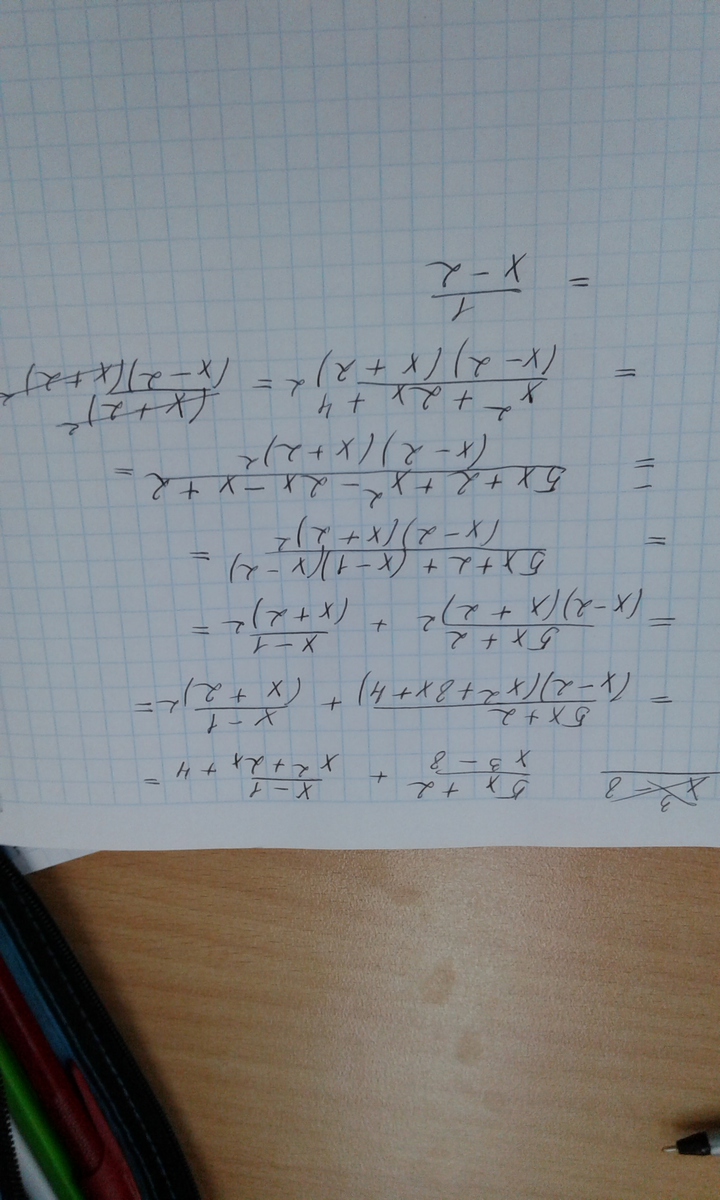 x³ - 8 (5x + 2)/(x³ - 8) + (x - 1)/(x² + 2x + 4) =
= (5x + 2)/((x - 2)(x² + 8x + 4)) + (x - 1)/(x + 2)² =
= (5x + 2)/((x - 2)(x + 2)²) + (x - 1)/(x + 2)² =
= (5x + 2 + (x - 1)(x - 2))/((x - 2)(x + 2)²) =
= (5x + 2 + x² - 2x - x + 2)/((x - 2)(x + 2)²) =
= (x² + 2x + 4)/((x - 2)(x + 2)²) = (x + 2)²/((x - 2)(x + 2)²)
= 1/(x - 2)